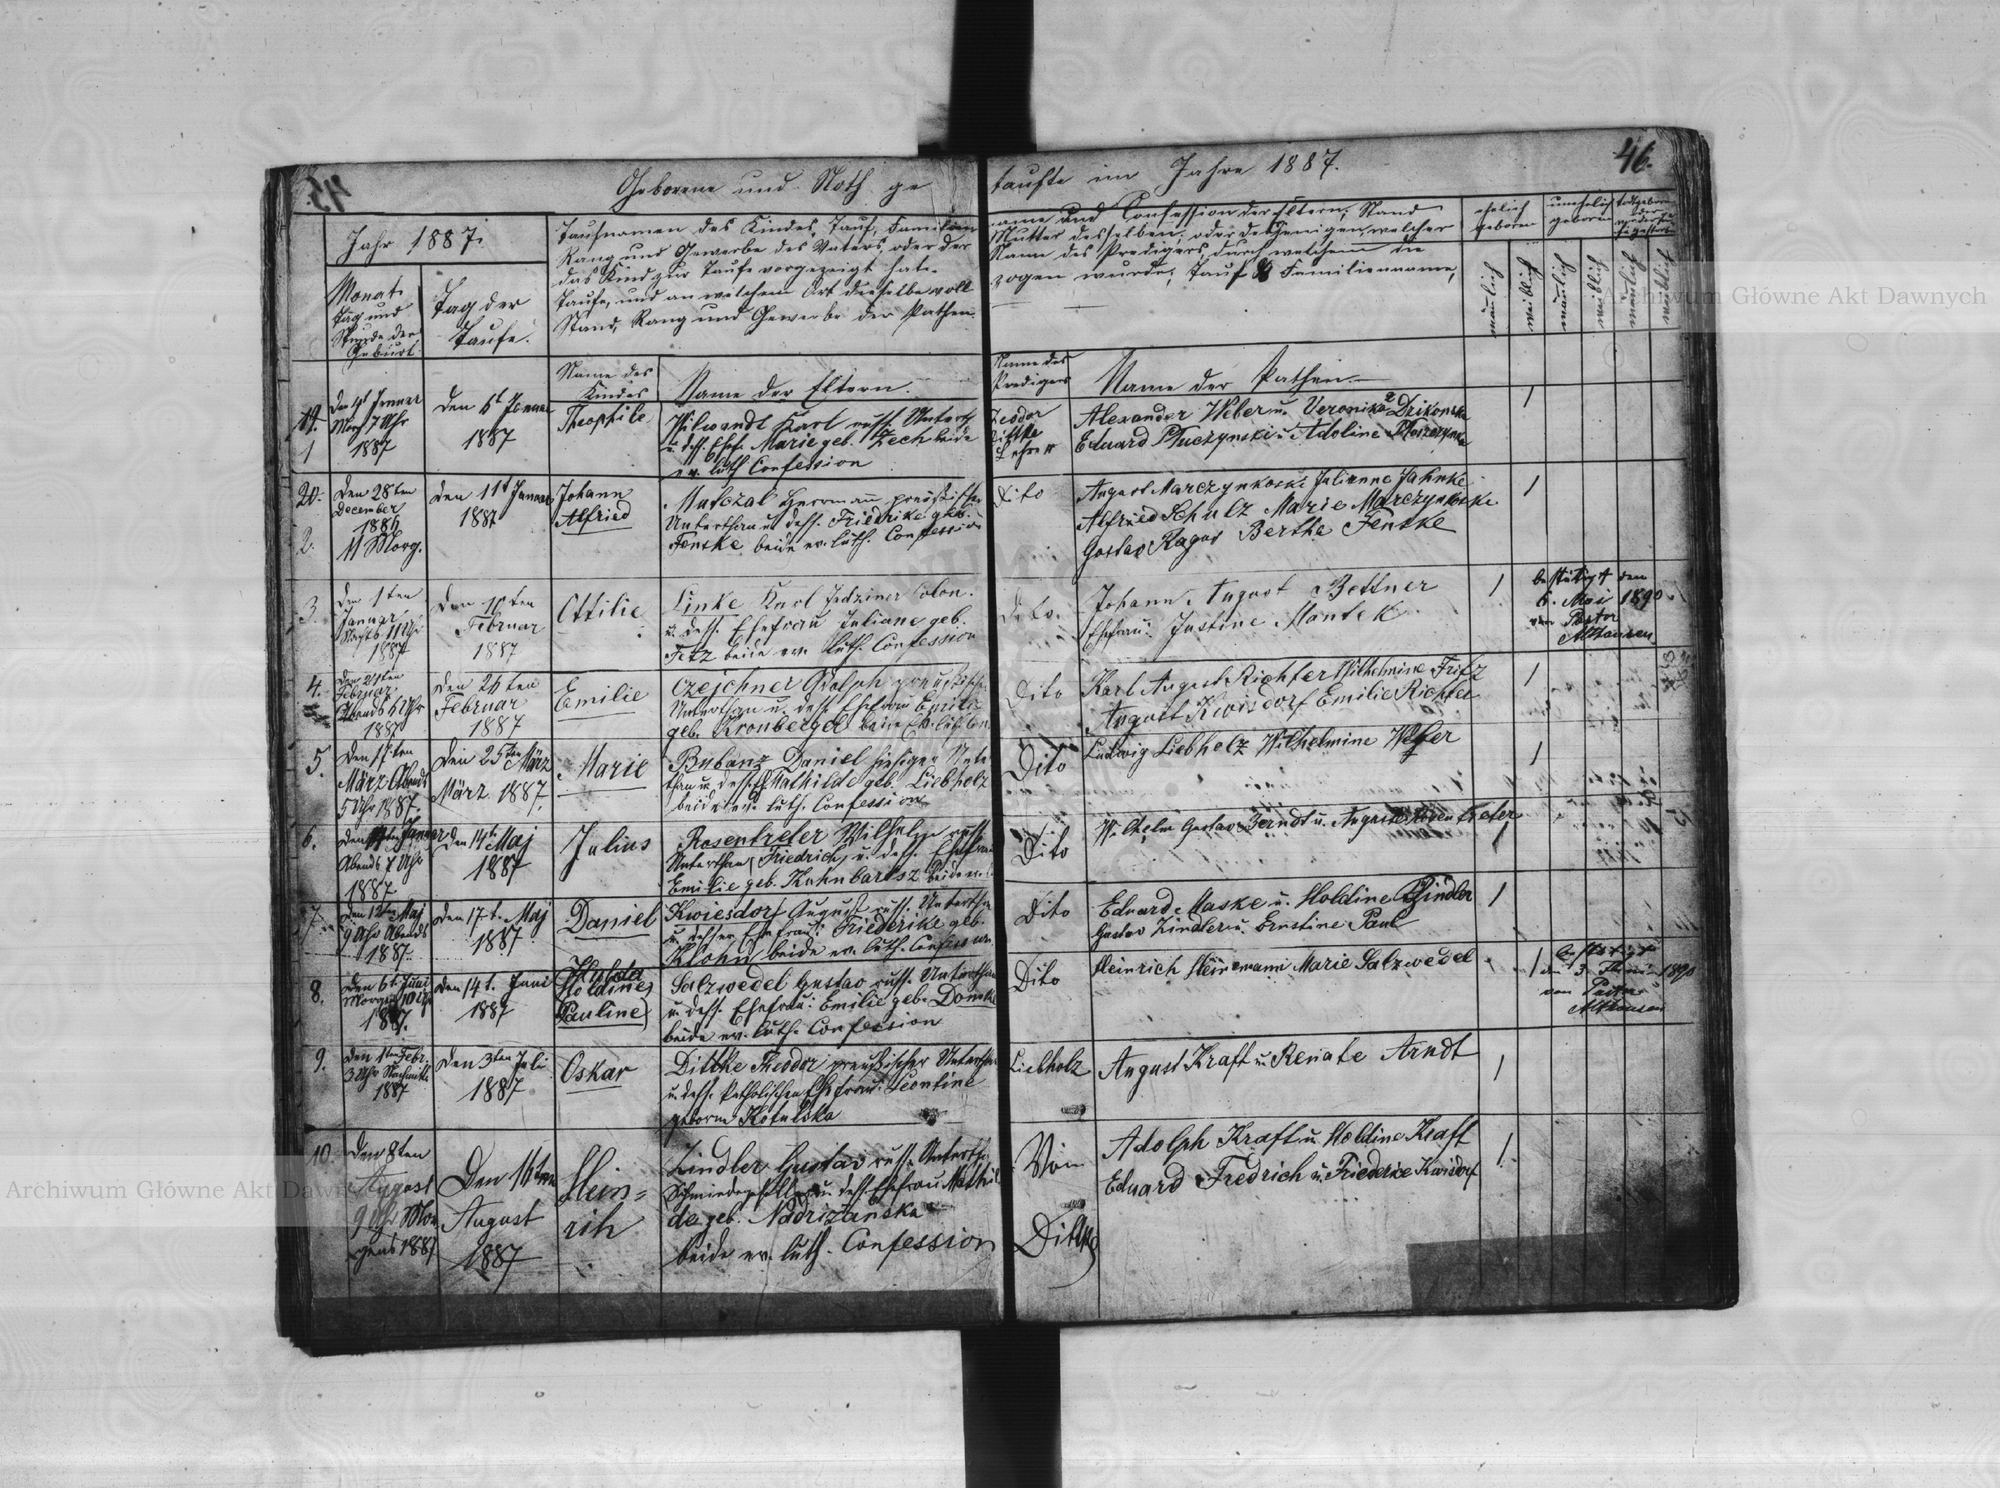 45.
Geborene und Noth ge
taufte im Jahre 1887.
46.
Jahr 1887.
Monat
Tag und
Stunde der
Geburt.
Tag der
Taufe.
Taufnamen des Kindes, Tauf, Familien
Rang und Gewerbe des Vaters oder der
das Kind zur Taufe vorgezeigt hat.
Taufe, und an welchem Ort dieselbe voll
Stand, Rang und Gewerbe der Pathen.
Name des
Kindes
Name der Eltern.
ame und Confession der Eltern, Stand
Mutter desselben, oder desjenigen welcher
Name des Predigers, durch welchen die
zogen wurde, Tauf & Familienname,
Name des
Predigers
Name der Pathen.
ehelich
geboren
unehelich
geboren
todtgeboren
oder
männlich
weiblich
männlich
weiblich
männlich
weiblich
19.
1
Den 4t Januar
Morg 7 Uhr
1887
Den 6t Januar
1887
Theophile
Hilwandt Karl russ. Untert
u. dess. Ehefr. Marie geb. Zech beide
ev. luth Confession
Teodor
Dittke
Lehrer
Alexander Weber u. Veronika Drikonska
Eduard Pluczynski u. Adoline Pluczynska
1
20.
2.
Den 28ten
December
1886
11 Morg.
Den 11t Januar
1887
Johann
Alfried
Matczak Herrmann preußischer
Unterthan u dess. Friedrike geb.
Fenske beide ev. luth. Confession
Dito
August Marczynkoski Julianne Jahnke
Alfried Schulz Marie Marczynkoske
Gustav Ragas Berthe Fenske
1
3.
Den 1ten
Januar
Nachts 11 Uhr
1887
Den 10ten
Februar
1887
Ottilie
Linke Karl Colon.
u. dess. Ehefrau Juliane geb.
Fetz beide ev. luth. Confession
Dito.
Johann August Bettner
Ehefrau: Justine Mantek
1
bestätigt den
6. Mai 1890
von Pastor
Althausen
4.
Den 21ten
Februar
Abends 6 Uhr
1887
Den 26ten
Februar
1887
Emilie
Czejchner Adolph preußische
Unterthan u. dess Ehefrau Emilie
geb. Kronberger beide Ev. luth. Con
Dito
Karl August Richter Wilhelmine Fritz
August Kwisdorf Emilie Richter
1
5.
März Abends
5 Uhr 1887.
Den 25ten März
März 1887.
Marie
Bubanz Daniel hiesiger Unte
than u. dess. E. Mathilde geb. Liebholz
beide ev. luth. Confession
Dito
Ludwig Liebholz Wilhelmine Weser
1
6.
Abends 7 Uhr
1887
Den 14t Maj
1887
Julius
Rosentreter Wilhelm russ.
Unterthan (Friedrich) u. dess. Ehefrau
Emilie geb. Kuhnbartsz beide ev.
Dito
Wilhelm Gustav Berndt u. Auguste Rosentreter
1
7.
Den 12ten Maj
9 Uhr Abends
1887.
Den 17t. Maj
1887
Daniel
Kwiesdorf August russ. Unterth
u. dessen Ehefrau: Friederike geb.
Klohn beide ev. luth. Confession.
Dito
Eduard Maske u. Holdine Zindler
Gustav Zindler u. Ernstine Paul
1
8.
Den 6t. Juni
Morgens 10 Uhr
1887.
Den 14t. Juni
1887
Hulda
Holdine
Pauline
Salzwedel Gustav russ. Unterthan
u. dess. Ehefrau: Emilie geb. Domke
beide ev. luth. Confession
Dito
Heinrich Heinemann Marie Salzwedel
1
bestätigt
den 3. Juni 1890
von Pastor
Althausen
9.
Den 1ten Febr.
3 Uhr Nachmitt.
1887
Den 3ten Juli
1887
Oskar
Dittke Theodor preußischer Unterthan
u. dess. katholischen Ehefrau: Leontine
geborne Kotulska
Liebholz
August Kraft u. Renate Arndt
1
10.
Den 8ten
August
9 Uhr Mor
gens 1887
Den 16ten
August
1887
Hein=
rih
Zindler Gustav russ. Unterth.
Schmiedegeselle u. dess. Ehefrau Mathil
de geb. Nadrizanska
beide ev. luth. Confession
Von
Dittke
Adolph Kraft u. Holdine Kraft
Eduard Fredrich u. Friederice Kwisdorf
1
Archiwum Główne Akt Dawnych
Archiwum Główne Akt Dawnych